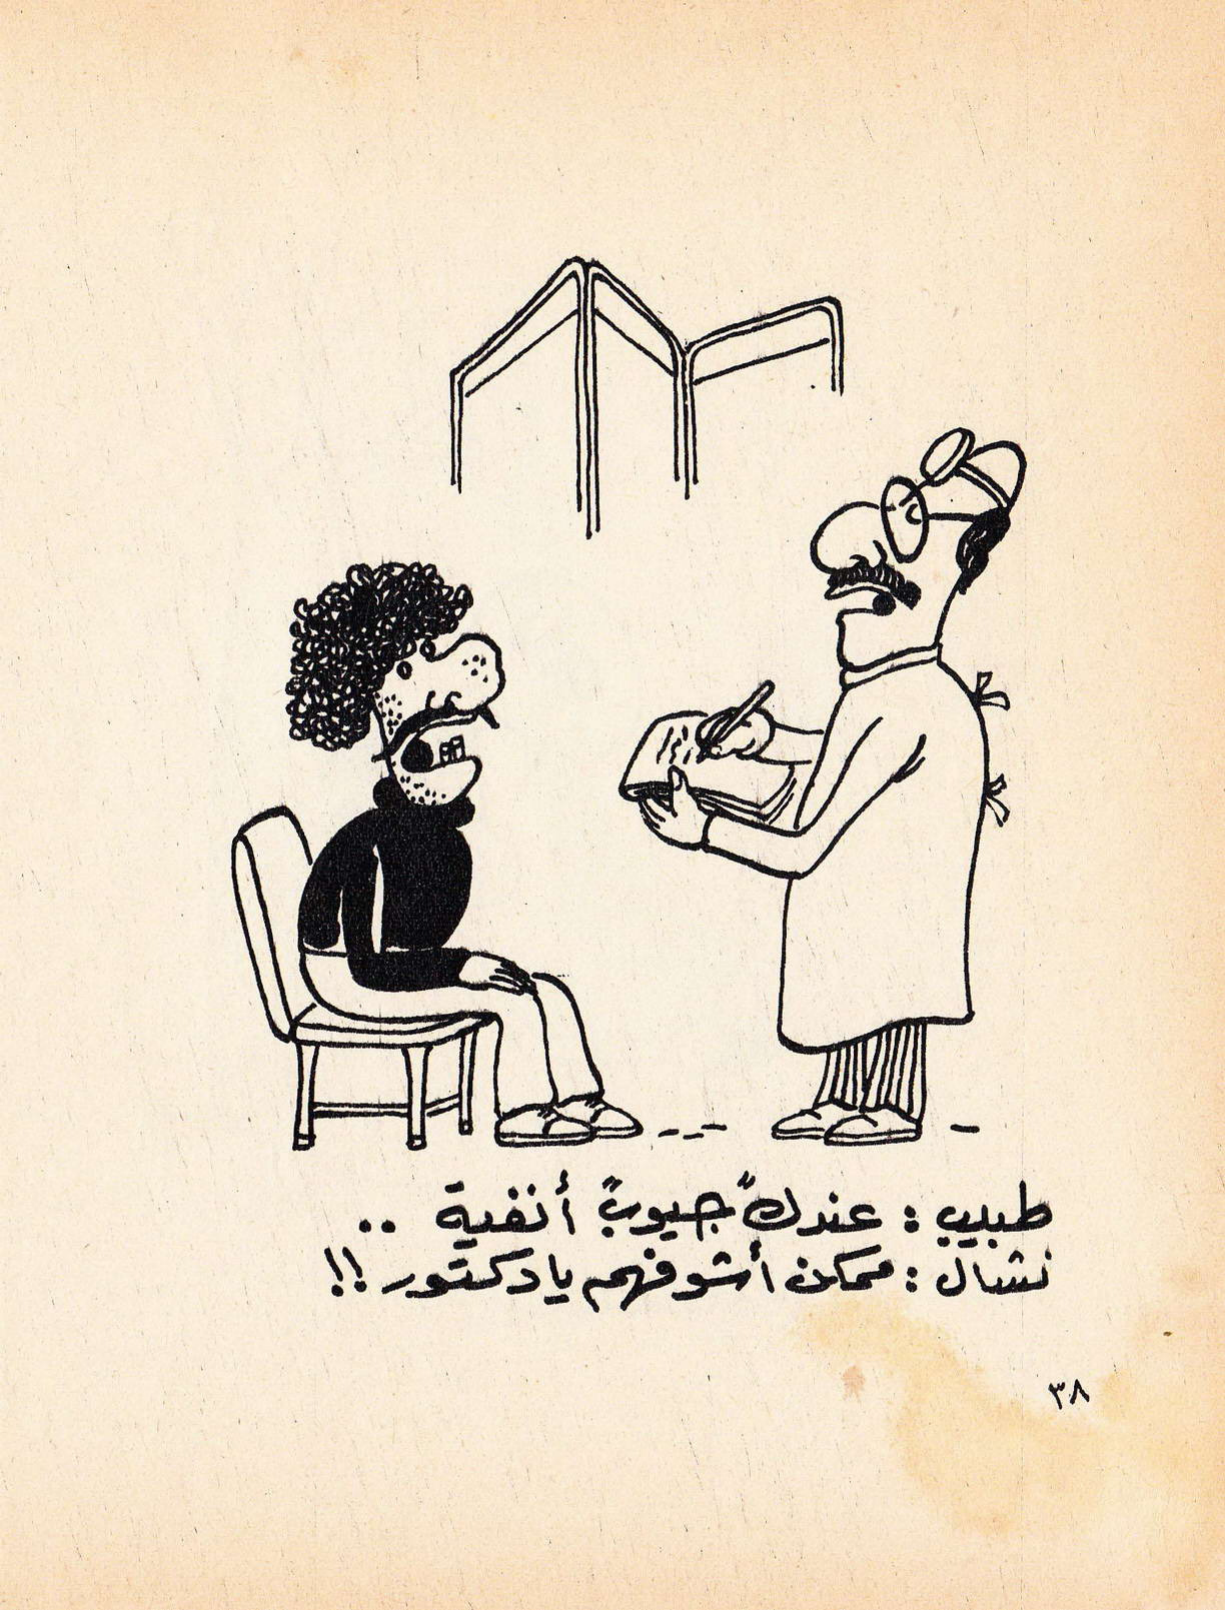 طبيب : عندك "جيوب" أنفية ..
نشال : ممكن أشوفهم يا دكتور !!
٣٨